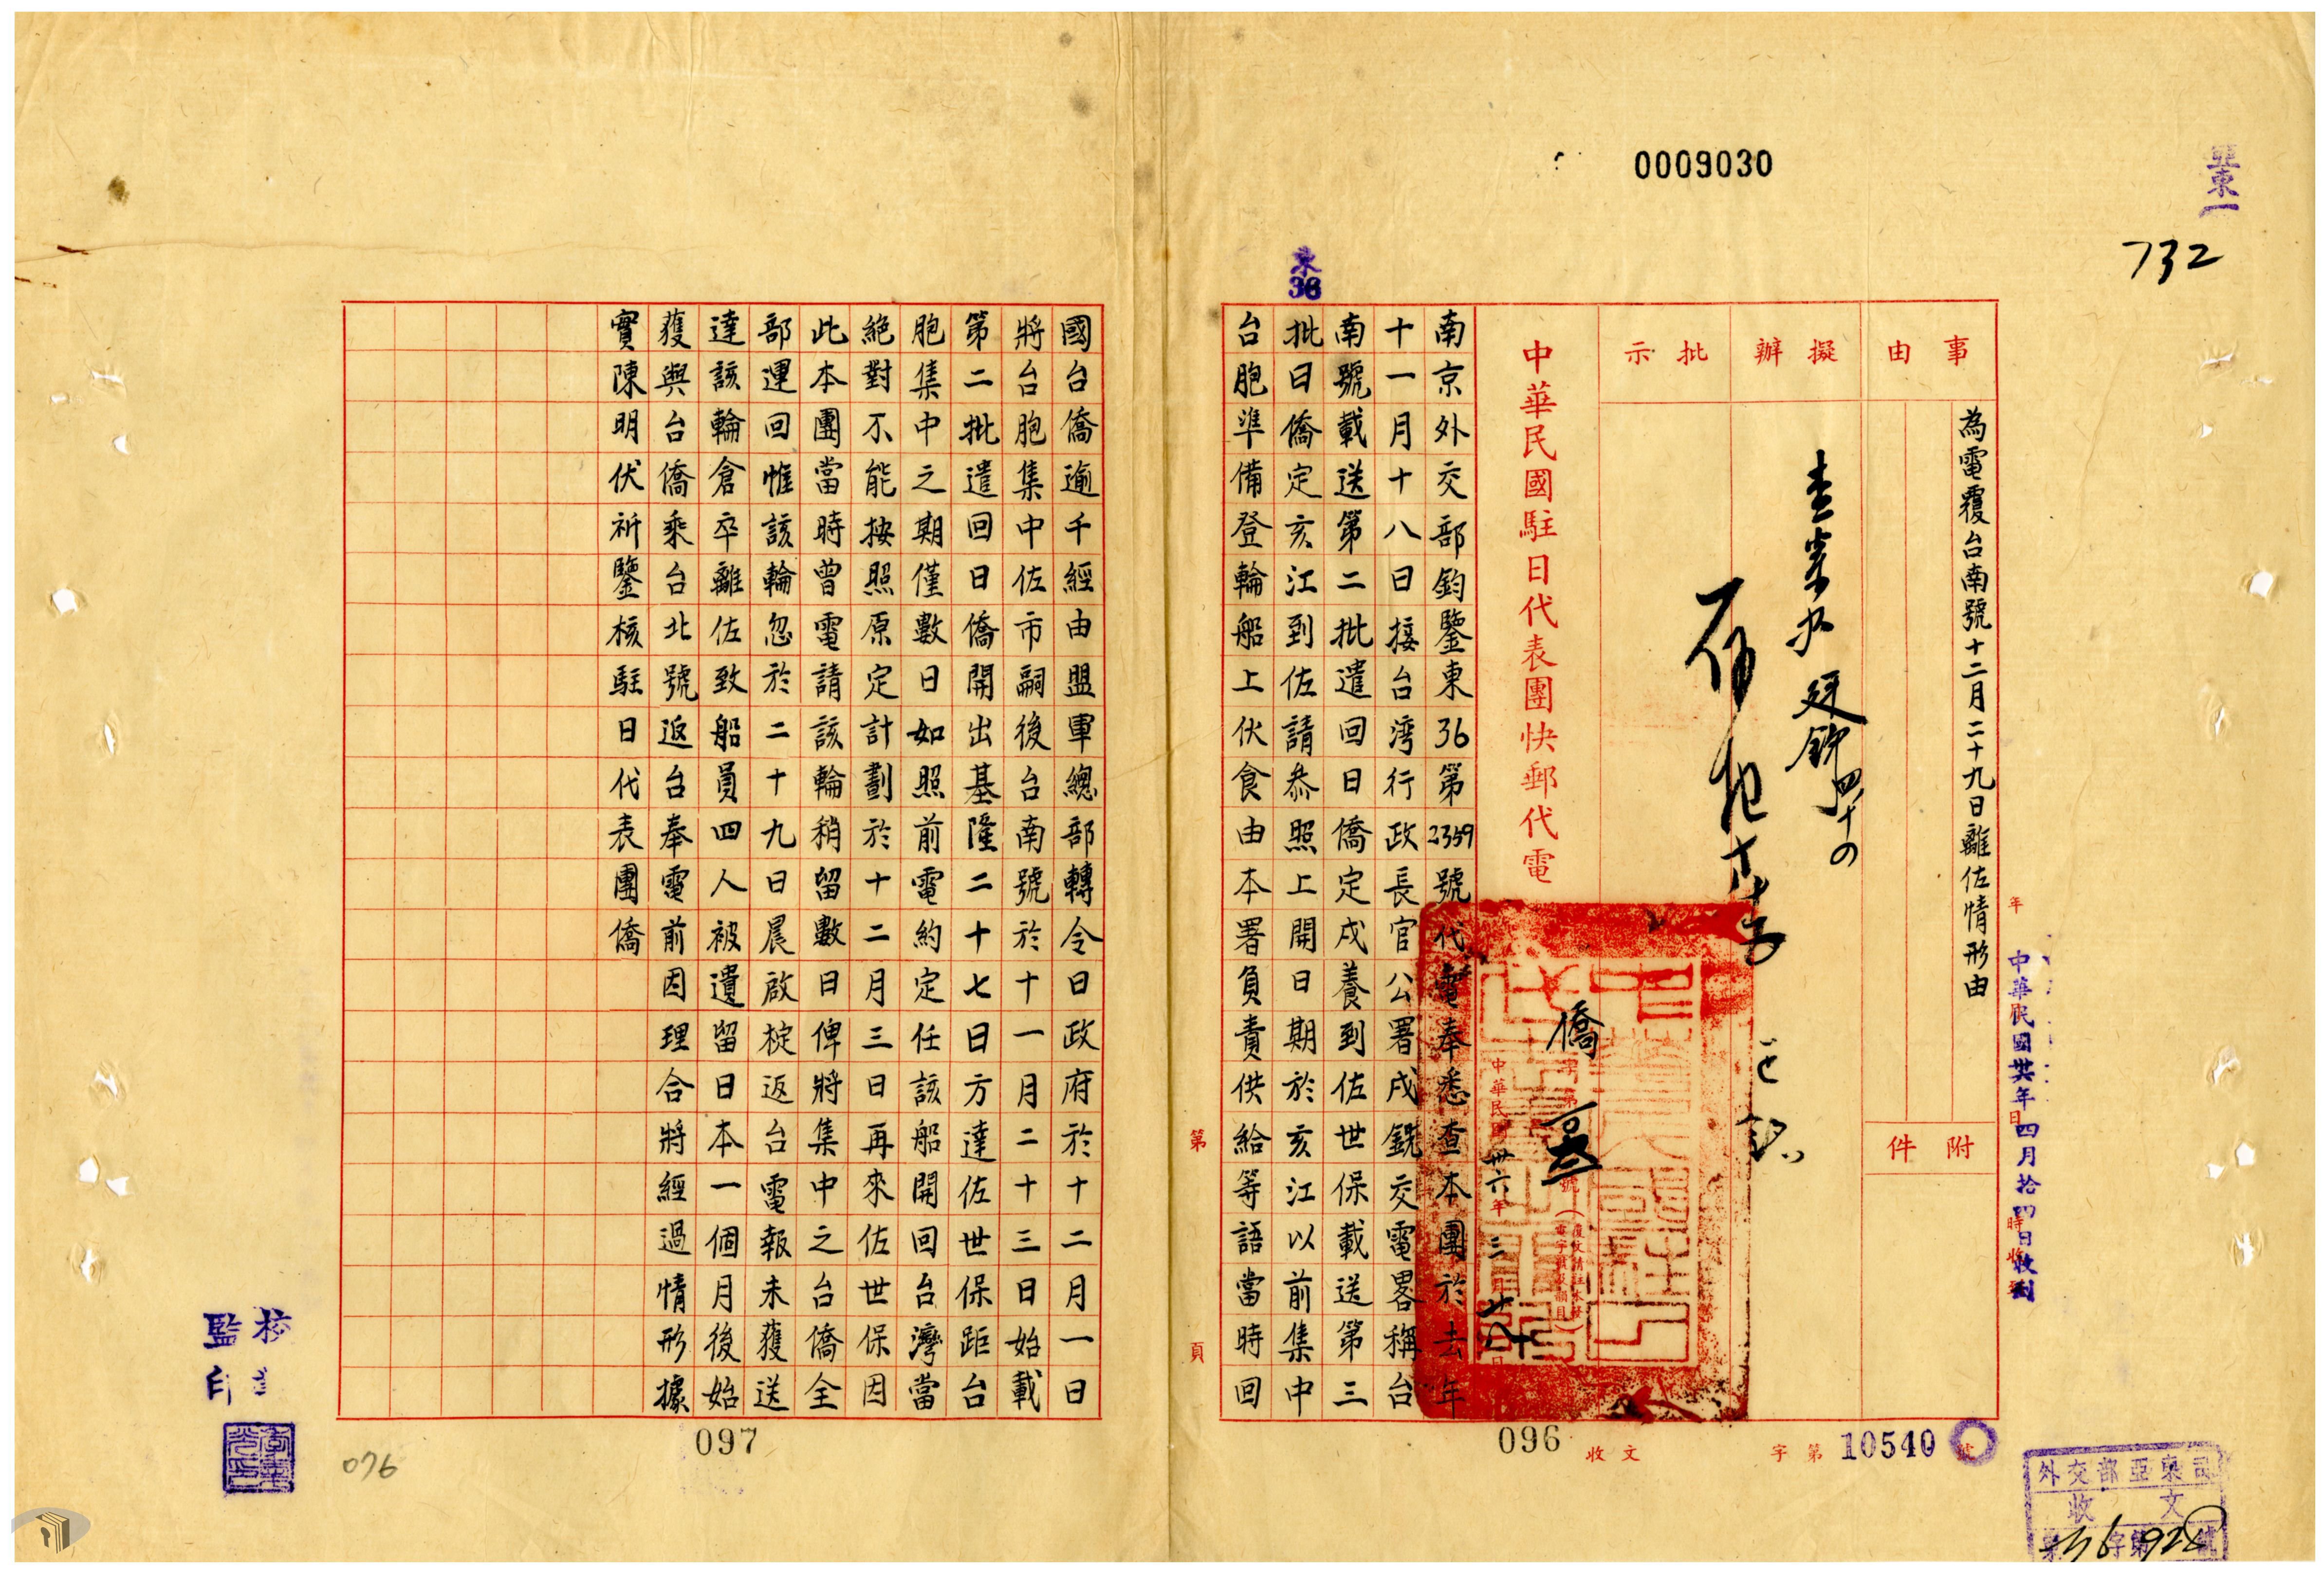 0009030
亞東一
732
東
36
事由
擬辦
批示
為電覆台南號十二月二十九日離佐情形由
附件
中華民國卅六年四月拾四日收到
中華民國駐日代表團快郵代電
僑
字第
號
中華民國卅六年三月十八日
南京外交部鈞鑒東36第2359號代電奉悉查本團於去年
十一月十八日接台湾行政長官公署戌銑交電畧稱台
南號載送第二批遣回日僑定戌養到佐世保載送第三
批日僑定亥江到佐請恭照上開日期於亥江以前集中
台胞準備登輪船上伙食由本署負責供給等語當時回
國台僑逾千經由盟軍總部轉令日政府於十二月一日
將台胞集中佐市嗣後台南號於十一月二十三日始載
第二批遣回日僑開出基隆二十七日方達佐世保距台
胞集中之期僅數日如照前電約定任該船開回台灣當
絕對不能按照原定計劃於十二月三日再來佐世保因
此本團當時曾電請該輪稍留數日俾將集中之台僑全
部運回惟該輪忽於二十九日晨啟椗返台電報未獲送
達該輪倉卒離佐致船員四人被遺留日本一個月後始
獲與台僑乘台北號返台奉電前因理合將經過情形據
實陳明伏祈鑒核駐日代表團僑
第 頁
096
097
076
收文
字第10540號
外交部亞東司
收文
校
監印